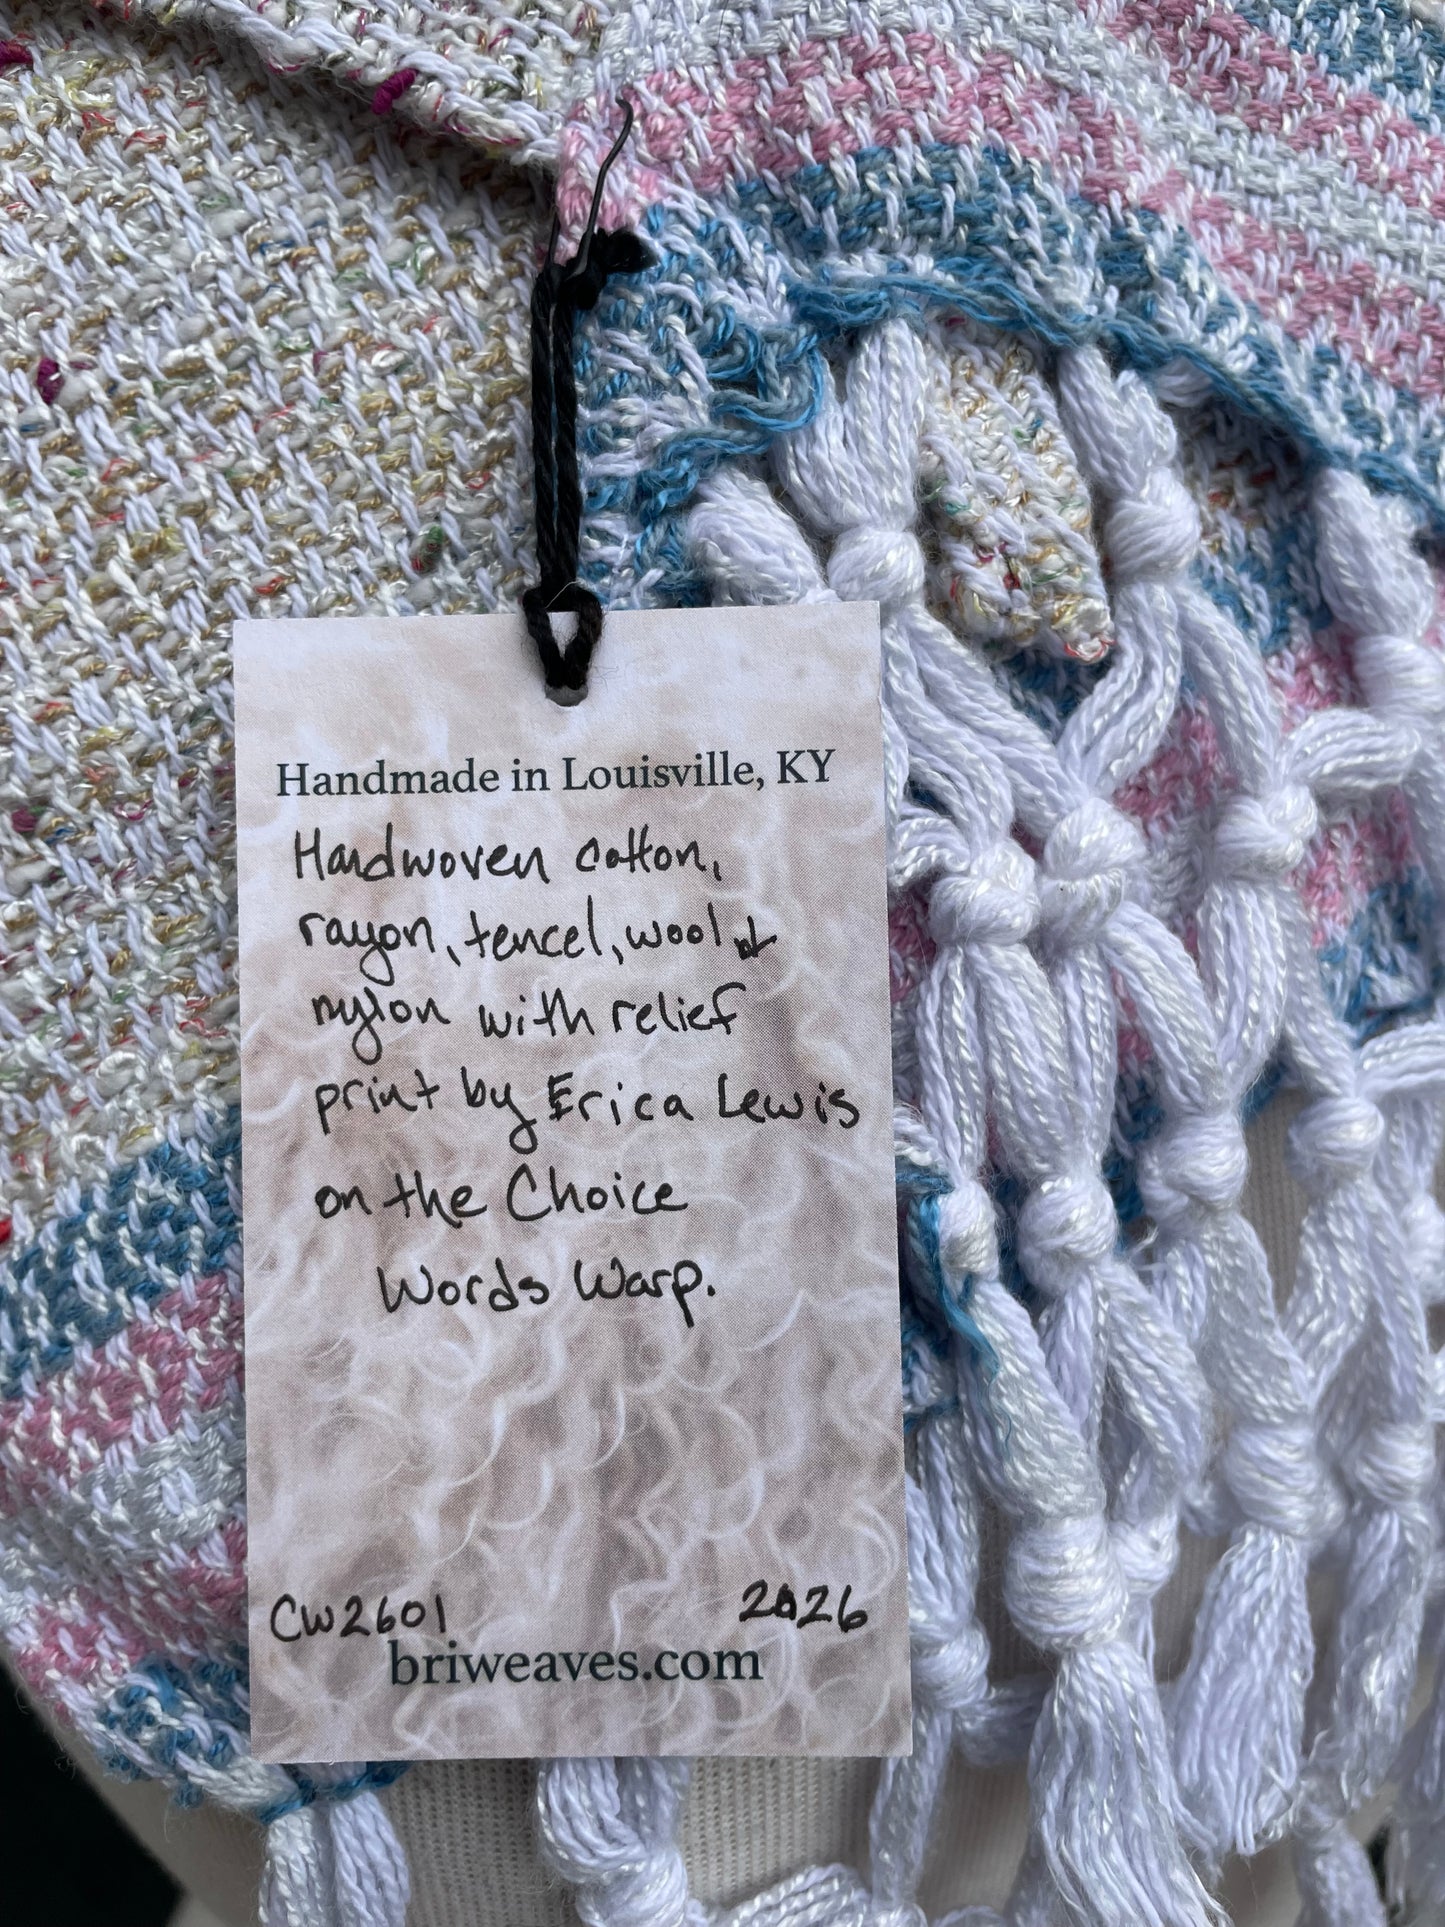 Handmade in Louisville, KY
Handwoven cotton,
rayon, tencel, wool &
nylon with relief
print by Erica Lewis
on the Choice
Words Warp.
CW2601 2026
briweaves.com